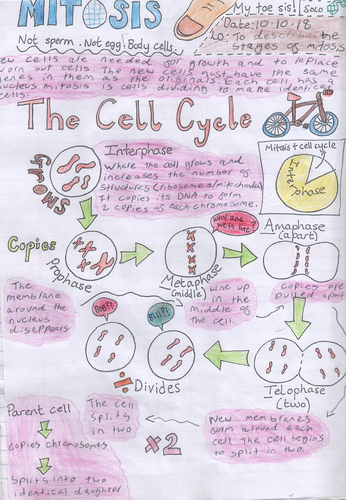 MITOSIS
My toe sis!
Date: 10.10.18
LO: To describe the
stages of mitosis
Not sperm. Not egg. Body cells.
New cells are needed for growth and to replace
worn out cells. The new cells must have the same
genes in them as the originals. Each cell has a
nucleus
mitosis is cells dividing to make identical
cells.
The Cell Cycle
Grows
Interphase
Where the cell grows and
increases the number of
structures (ribosomes/mitochondria)
It copies its DNA to form
2 copies of each chromosome.
Mitosis + cell cycle
Interphase
Copies
Prophase
Why are we in line?
Metaphase
(middle)
Anaphase
(apart)
The
membrane
around the
nucleus
disappears
Line up
in the
middle of
the cell.
Copies are
pulled apart
Divides
Telophase
(two)
Parent cell
copies chromosomes
splits into two
identical daughter
The cell
splits
in two
x2
New membranes
form around each
cell. The cell begins
to split in two.